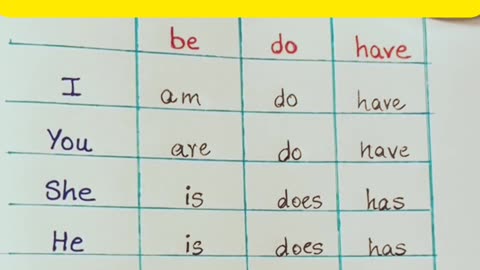 be do have
I am do have
You are do have
She is does has
He is does has